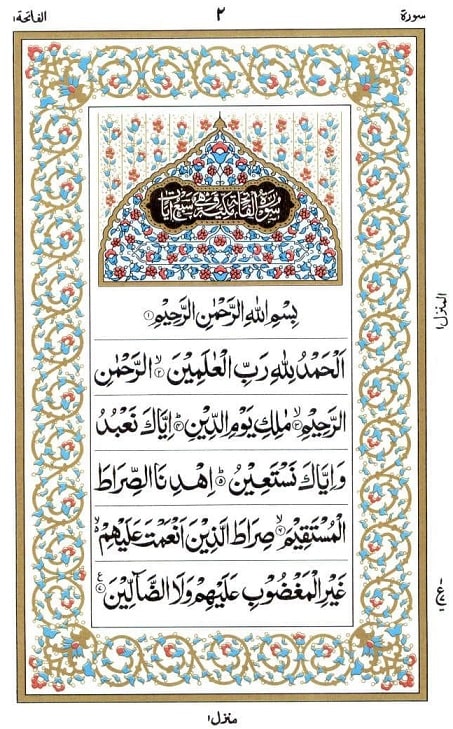 سورة
٢
الفاتحة ١
سُوْرَةُ الْفَاتِحَةِ مَكِّيَّةٌ وَّهِىَ سَبْعُ اٰيَاتٍ
بِسْمِ اللهِ الرَّحْمٰنِ الرَّحِيْمِ ۝١
اَلْحَمْدُ لِلّٰهِ رَبِّ الْعٰلَمِيْنَ ۙ۝٢ الرَّحْمٰنِ
الرَّحِيْمِ ۙ۝٣ مٰلِكِ يَوْمِ الدِّيْنِ ؕ۝٤ اِيَّاكَ نَعْبُدُ
وَاِيَّاكَ نَسْتَعِيْنُ ؕ۝٥ اِهْدِنَا الصِّرَاطَ
الْمُسْتَقِيْمَ ۙ۝٦ صِرَاطَ الَّذِيْنَ اَنْعَمْتَ عَلَيْهِمْ ۙ
غَيْرِ الْمَغْضُوْبِ عَلَيْهِمْ وَلَا الضَّآلِّيْنَ ۝٧ ع
المنزل ١
منزل ١